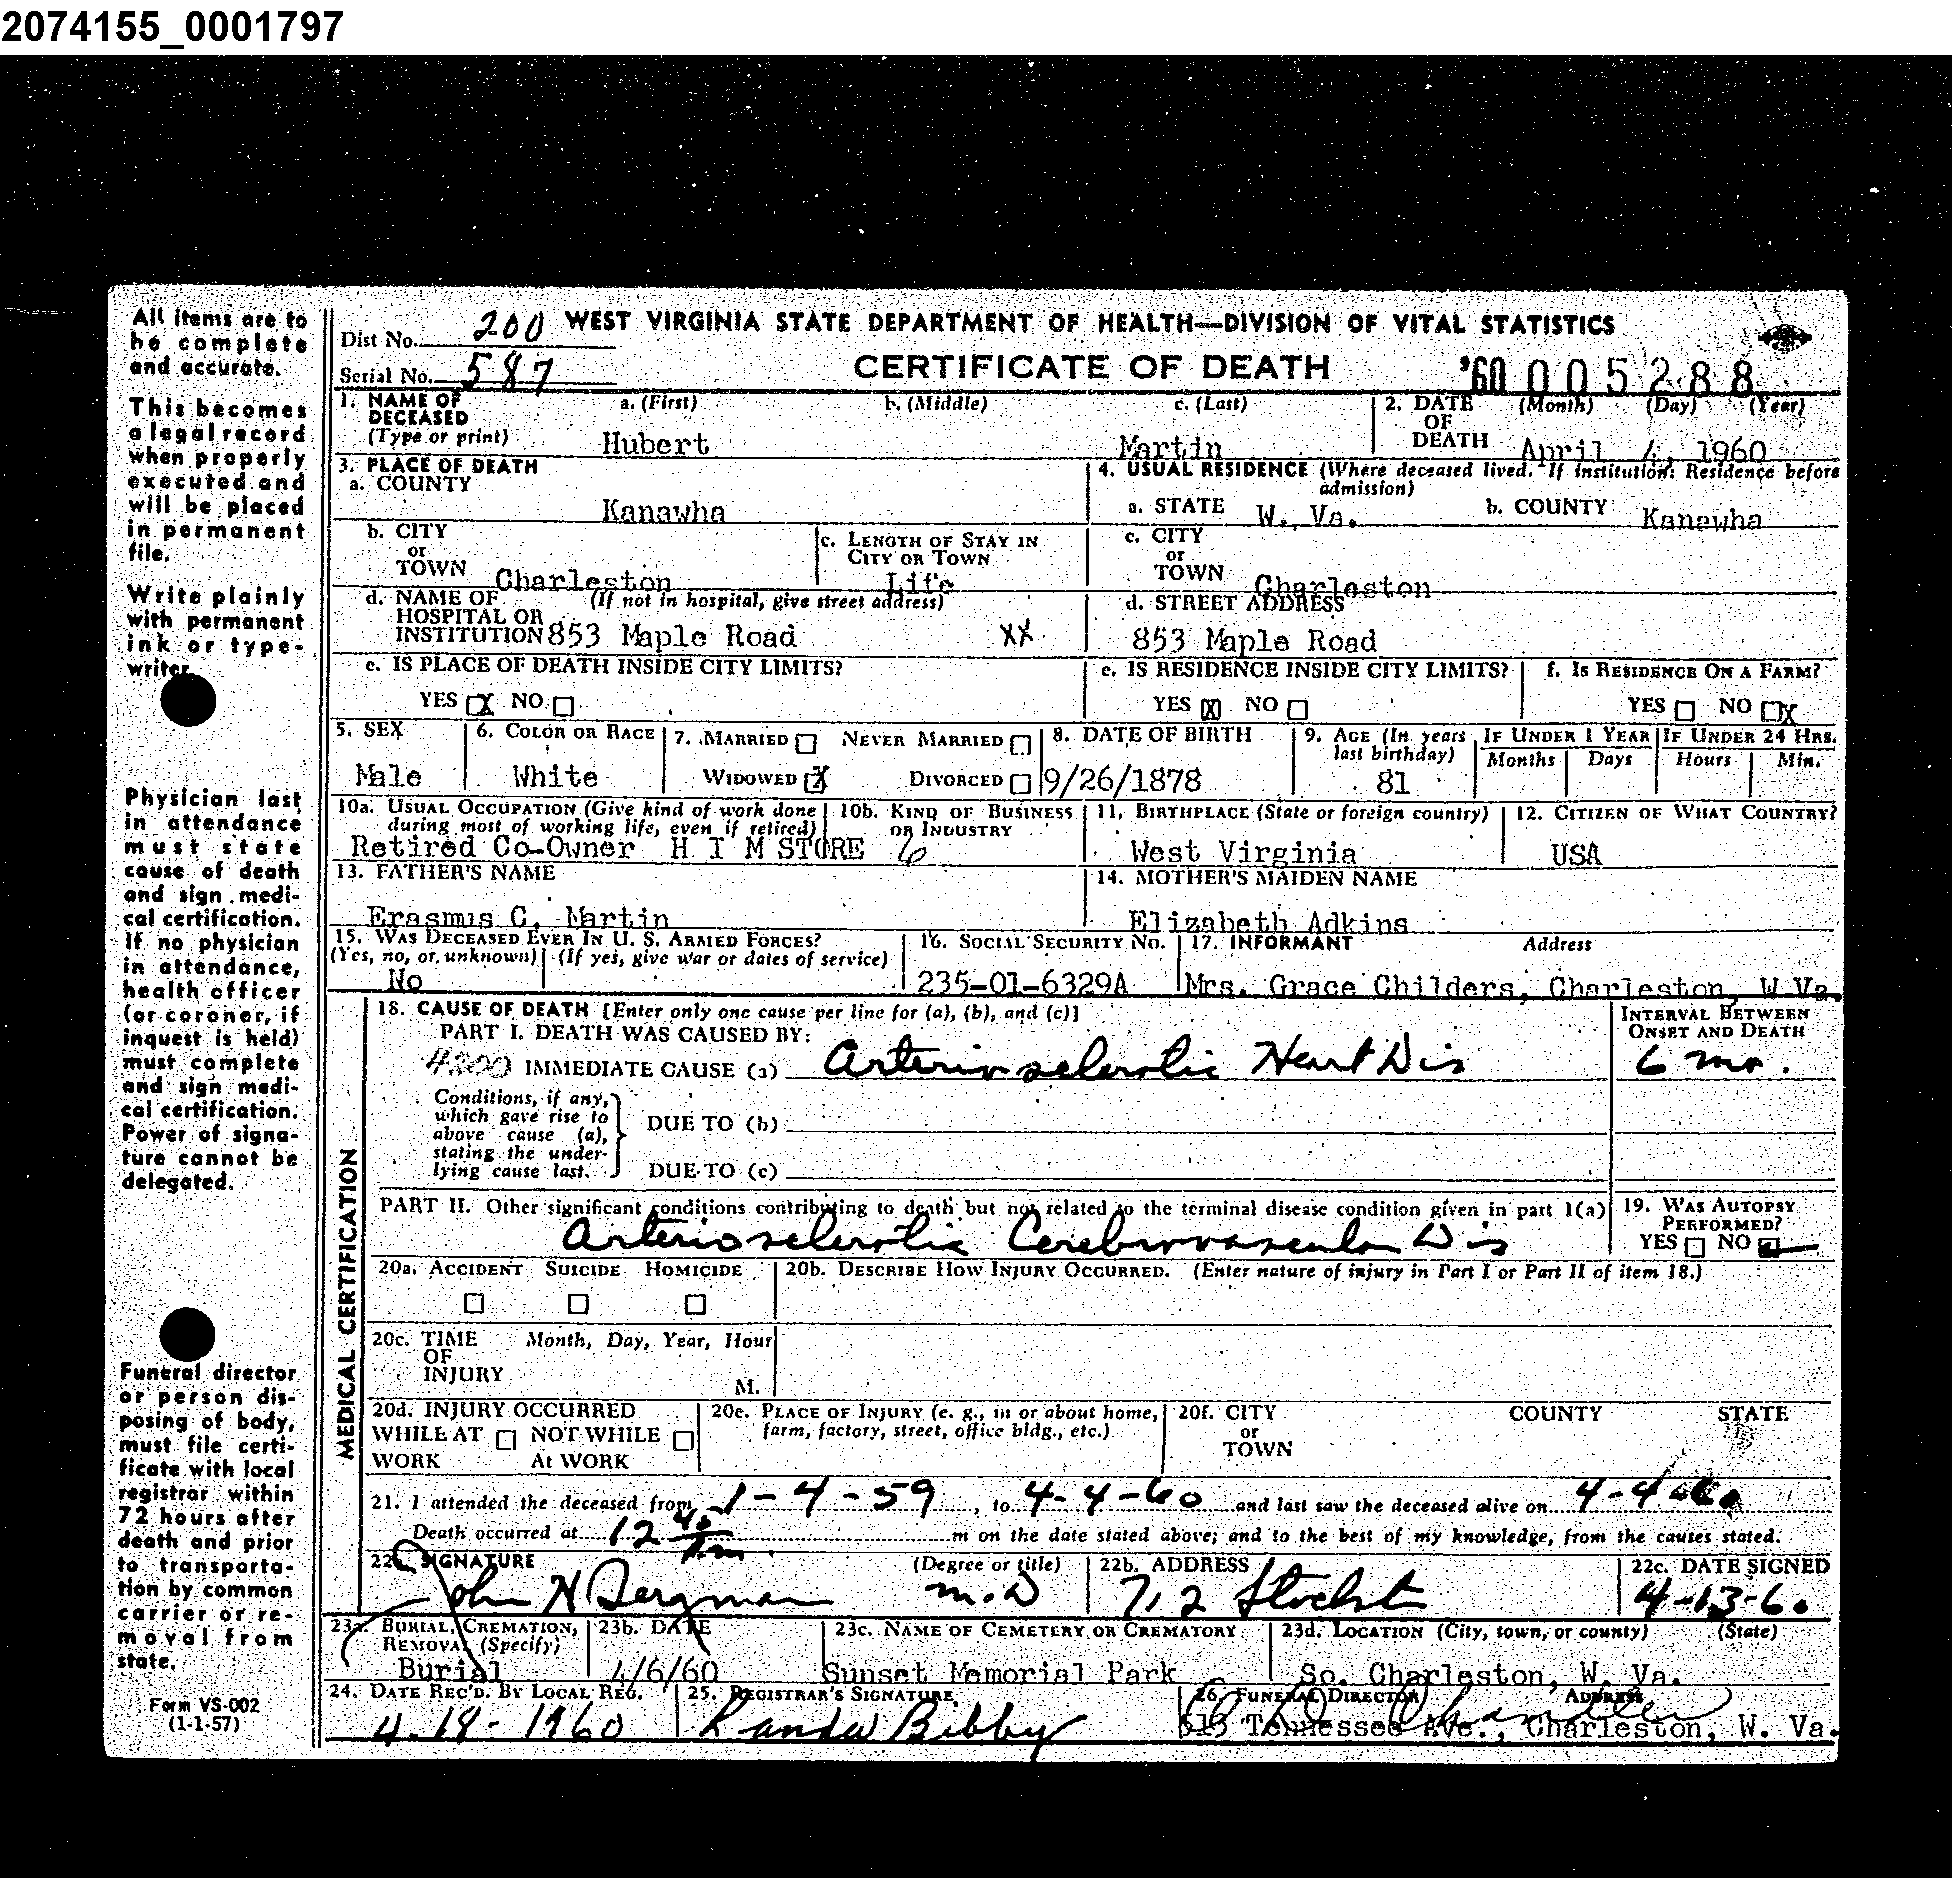 2074155_0001797
All items are to
be complete
and accurate.
This becomes
a legal record
when properly
executed and
will be placed
in permanent
file.
Write plainly
with permanent
ink or type-
writer.
Physician last
in attendance
must state
cause of death
and sign medi-
cal certification.
If no physician
in attendance,
health officer
(or coroner, if
inquest is held)
must complete
and sign medi-
cal certification.
Power of signa-
ture cannot be
delegated.
Funeral director
or person dis-
posing of body,
must file certi-
ficate with local
registrar within
72 hours after
death and prior
to transporta-
tion by common
carrier or re-
moval from
state.
Form VS-002
(1-1-57)
Dist No. 200 WEST VIRGINIA STATE DEPARTMENT OF HEALTH—DIVISION OF VITAL STATISTICS
Serial No. 587 CERTIFICATE OF DEATH '60 005288
1. NAME OF DECEASED (Type or print) a. (First) b. (Middle) c. (Last)
Hubert Martin
2. DATE OF DEATH (Month) (Day) (Year)
April 4, 1960
3. PLACE OF DEATH
a. COUNTY
Kanawha
4. USUAL RESIDENCE (Where deceased lived. If institution: Residence before admission)
a. STATE W. Va. b. COUNTY Kanawha
b. CITY or TOWN Charleston
c. LENGTH OF STAY IN CITY OR TOWN
Life
c. CITY or TOWN Charleston
d. NAME OF HOSPITAL OR INSTITUTION (If not in hospital, give street address)
853 Maple Road XX
d. STREET ADDRESS
853 Maple Road
e. IS PLACE OF DEATH INSIDE CITY LIMITS?
YES X NO
e. IS RESIDENCE INSIDE CITY LIMITS?
YES X NO
f. IS RESIDENCE ON A FARM?
YES NO X
5. SEX
Male
6. COLOR OR RACE
White
7. MARRIED NEVER MARRIED
WIDOWED X DIVORCED
8. DATE OF BIRTH
9/26/1878
9. AGE (In years last birthday)
81
IF UNDER 1 YEAR
Months Days
IF UNDER 24 HRS.
Hours Min.
10a. USUAL OCCUPATION (Give kind of work done during most of working life, even if retired)
10b. KIND OF BUSINESS OR INDUSTRY
Retired Co-Owner H I M STORE 6
11. BIRTHPLACE (State or foreign country)
West Virginia
12. CITIZEN OF WHAT COUNTRY?
USA
13. FATHER'S NAME
Erasmus C. Martin
14. MOTHER'S MAIDEN NAME
Elizabeth Adkins
15. WAS DECEASED EVER IN U. S. ARMED FORCES?
(Yes, no, or unknown) (If yes, give war or dates of service)
No
16. SOCIAL SECURITY No.
235-01-6329A
17. INFORMANT Address
Mrs. Grace Childers, Charleston, W.Va.
MEDICAL CERTIFICATION
18. CAUSE OF DEATH [Enter only one cause per line for (a), (b), and (c)]
INTERVAL BETWEEN ONSET AND DEATH
PART I. DEATH WAS CAUSED BY:
4200 IMMEDIATE CAUSE (a) Arteriosclerotic Heart Dis 6 mo.
Conditions, if any, which gave rise to above cause (a), stating the underlying cause last.
DUE TO (b)
DUE TO (c)
PART II. Other significant conditions contributing to death but not related to the terminal disease condition given in part I(a)
Arteriosclerotic Cerebrovascular Dis
19. WAS AUTOPSY PERFORMED?
YES NO
20a. ACCIDENT SUICIDE HOMICIDE
20b. DESCRIBE HOW INJURY OCCURRED. (Enter nature of injury in Part I or Part II of item 18.)
20c. TIME OF INJURY Month, Day, Year, Hour
M.
20d. INJURY OCCURRED
WHILE AT WORK NOT WHILE At WORK
20e. PLACE OF INJURY (e. g., in or about home, farm, factory, street, office bldg., etc.)
20f. CITY or TOWN COUNTY STATE
21. I attended the deceased from 1-4-59, to 4-4-60 and last saw the deceased alive on 4-4-60
Death occurred at 12 40 m on the date stated above; and to the best of my knowledge, from the causes stated.
22a. SIGNATURE (Degree or title)
John N Bergman M.D
22b. ADDRESS
712
22c. DATE SIGNED
4-13-60
23a. BURIAL, CREMATION, REMOVAL (Specify)
Burial
23b. DATE
4/6/60
23c. NAME OF CEMETERY OR CREMATORY
Sunset Memorial Park
23d. LOCATION (City, town, or county) (State)
So. Charleston, W. Va.
24. DATE REC'D. BY LOCAL REG.
4-18-1960
25. REGISTRAR'S SIGNATURE
Landa Bibby
26. FUNERAL DIRECTOR ADDRESS
Chandler
615 Tennessee Ave., Charleston, W. Va.